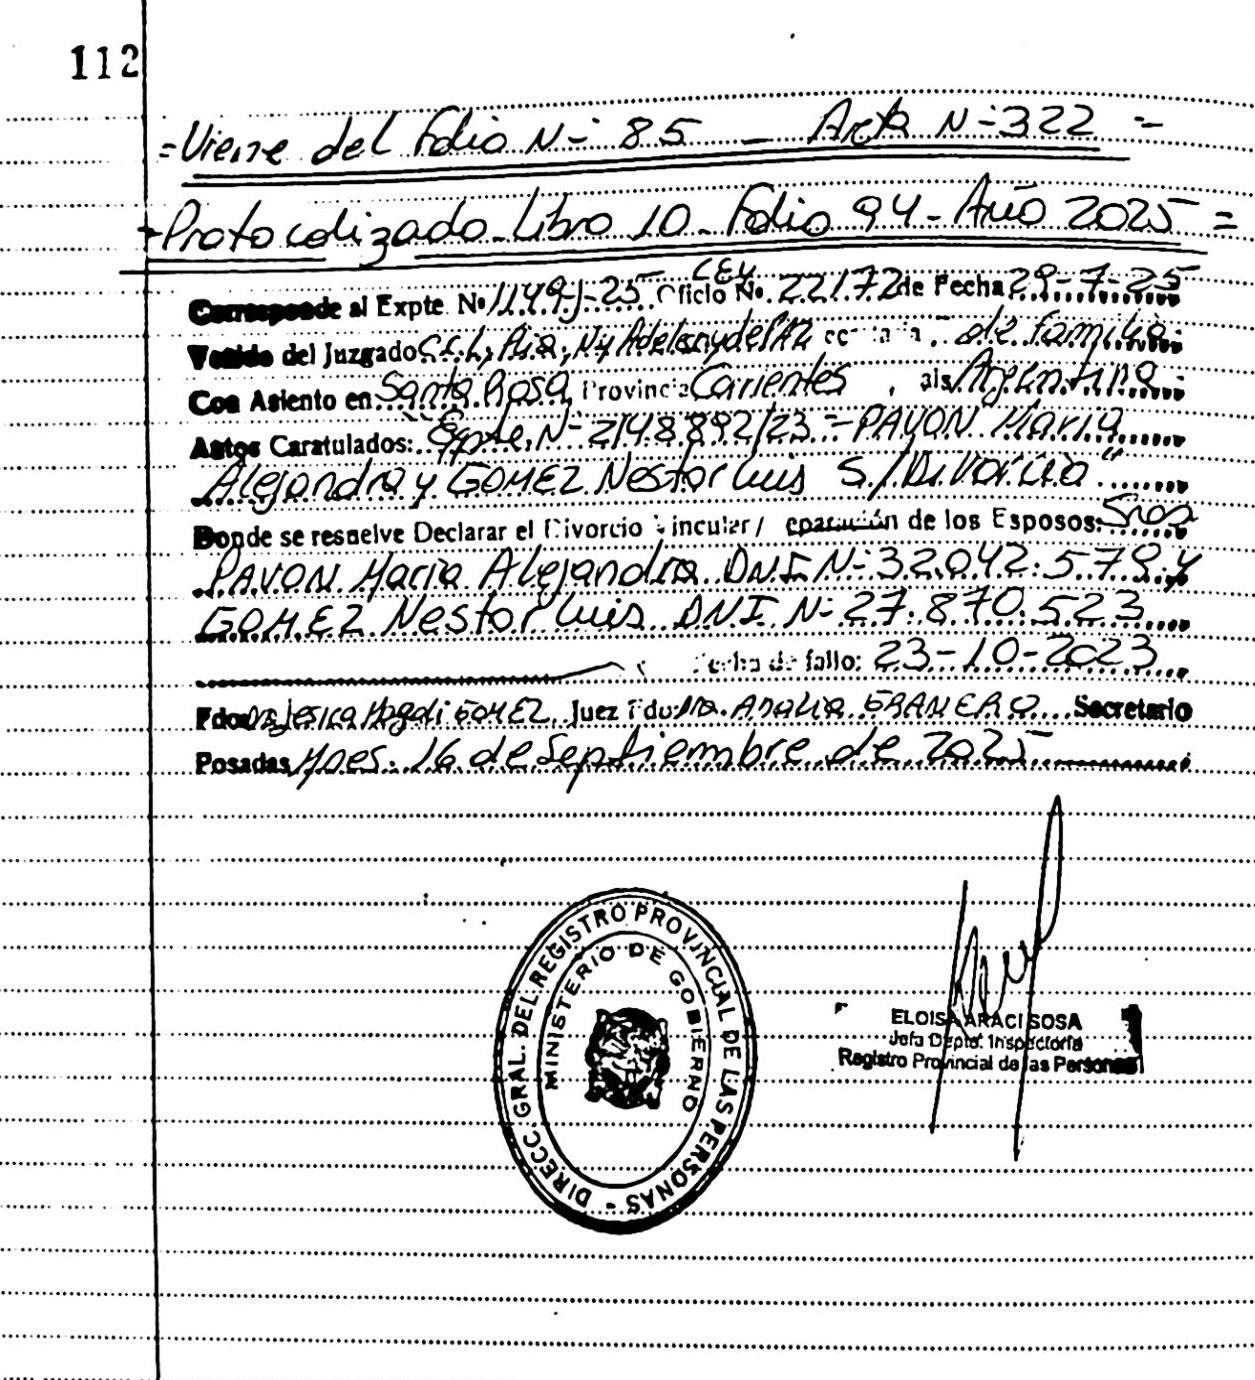 112
=Viene del Folio N-° 85 _ Acta N-° 322 =
=Protocolizado Libro 10_ Folio 94_ Año 2025 =
Corresponde al Expte. Nº 1149-J-25 Oficio Nº. 22172 de Fecha 29-7-25
Venido del Juzgado de familia
Con Asiento en Santa Rosa Provincia Corrientes, ais Argentina
Autos Caratulados: Expte. N-° 2148.892/23 - PAVON Maria
Alejandra y GOMEZ Nestor Luis S/Divorcio"
Donde se resuelve Declarar el Divorcio Vincular / eparación de los Esposos: Sres
PAVON Maria Alejandra DNI N-° 32.042.579 y
GOMEZ Nestor Luis DNI N-° 27.870.523
Fecha de fallo: 23-10-2023
Fdo Jesica Magali GOMEZ Juez Fdo Dra. Analia GRANERO Secretario
Posadas, Mnes. 16 de Septiembre de 2025
DIRECC. GRAL. DEL REGISTRO PROVINCIAL DE LAS PERSONAS -
MINISTERIO DE GOBIERNO
ELOISA ARACI SOSA
Jefa Dpto. Inspectoria
Registro Provincial de las Personas